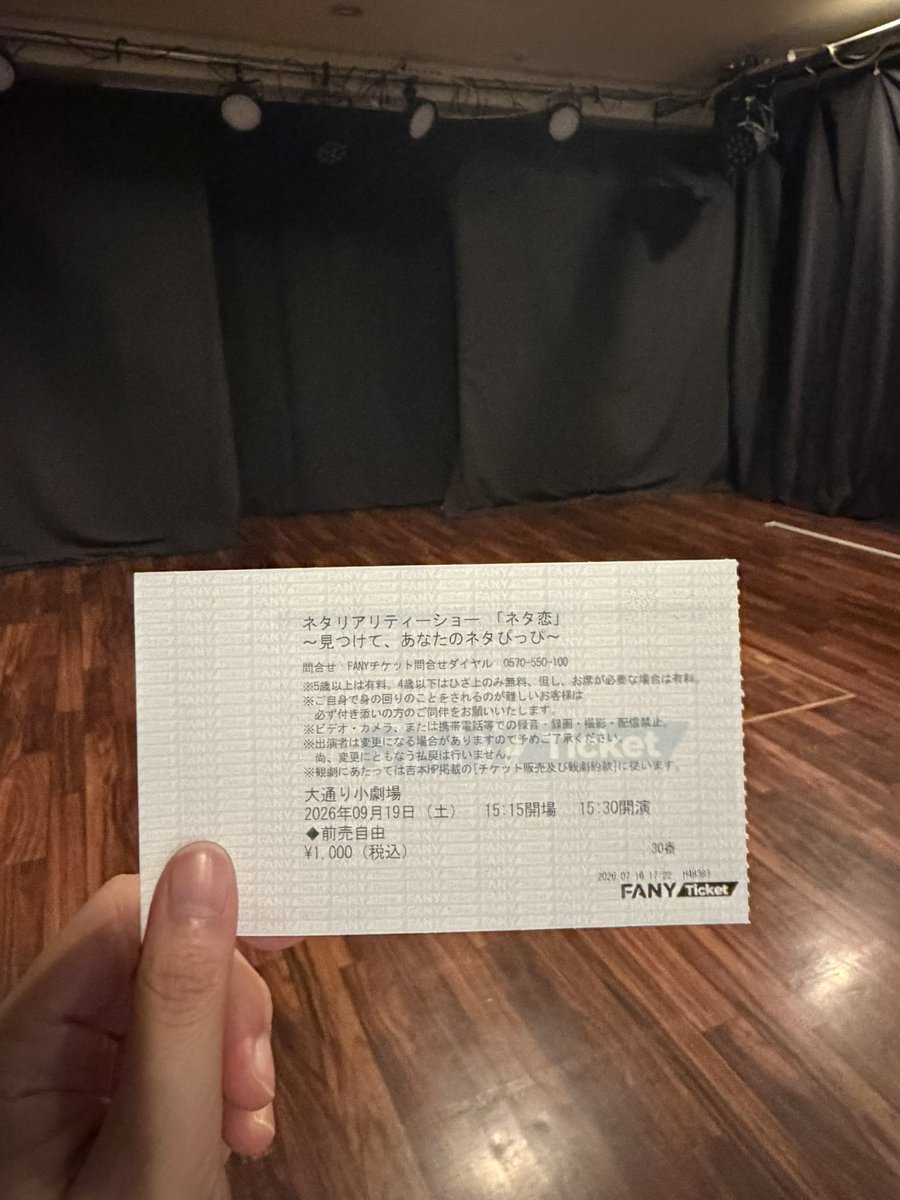 ネタリアリティーショー 「ネタ恋」
~見つけて、あなたのネタぴっぴ~
問合せ FANYチケット問合せダイヤル 0570-550-100
※5歳以上は有料。4歳以下はひざ上のみ無料、但し、お席が必要な場合は有料。
※ご自身で身の回りのことをされるのが難しいお客様は
必ず付き添いの方のご同伴をお願いいたします。
※ビデオ・カメラ、または携帯電話等での録音・録画・撮影・配信禁止。
※出演者は変更になる場合がありますので予めご了承ください。
尚、変更にともなう払戻は行いません。
※観劇にあたっては吉本HP掲載の[チケット販売及び観劇約款]に従います。
大通り小劇場
2026年09月19日（土） 15:15開場 15:30開演
◆前売自由
¥1,000（税込）
30番
2026.07.16 17:22
FANY Ticket